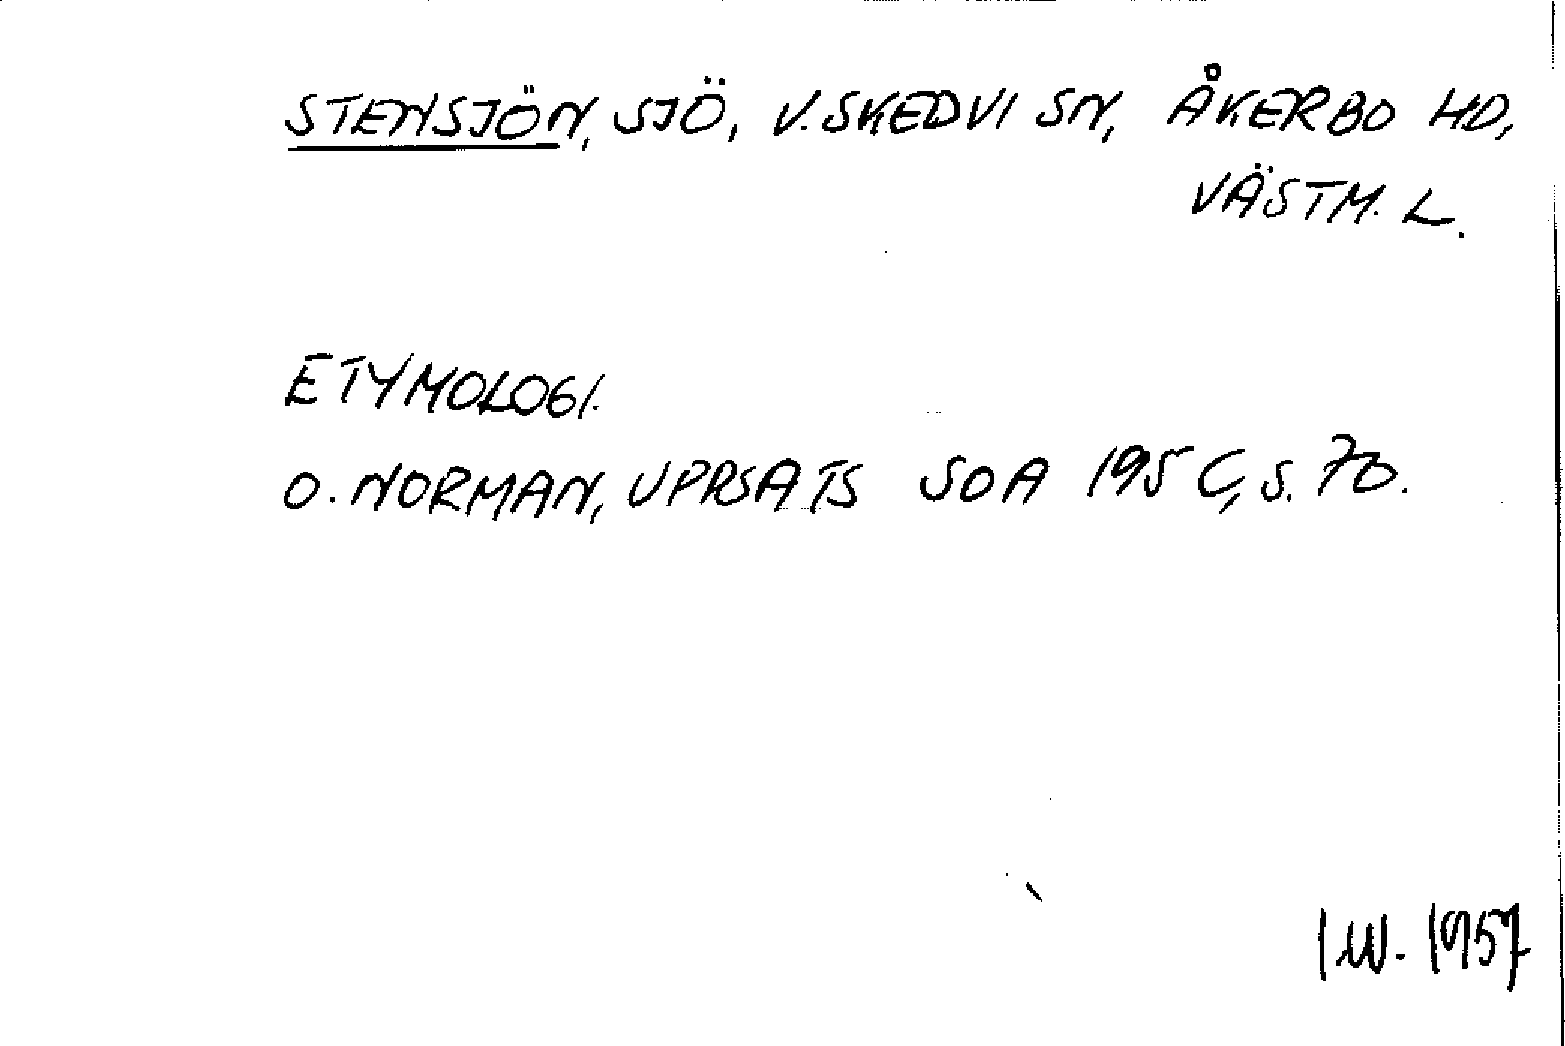 STENSJÖN, SJÖ, V. SKEDVI SN, ÅKERBO HD,
VÄSTM. L.
ETYMOLOGI.
O. NORMAN, UPRSATS SOA 195 C, S. 70.
IW. 1957